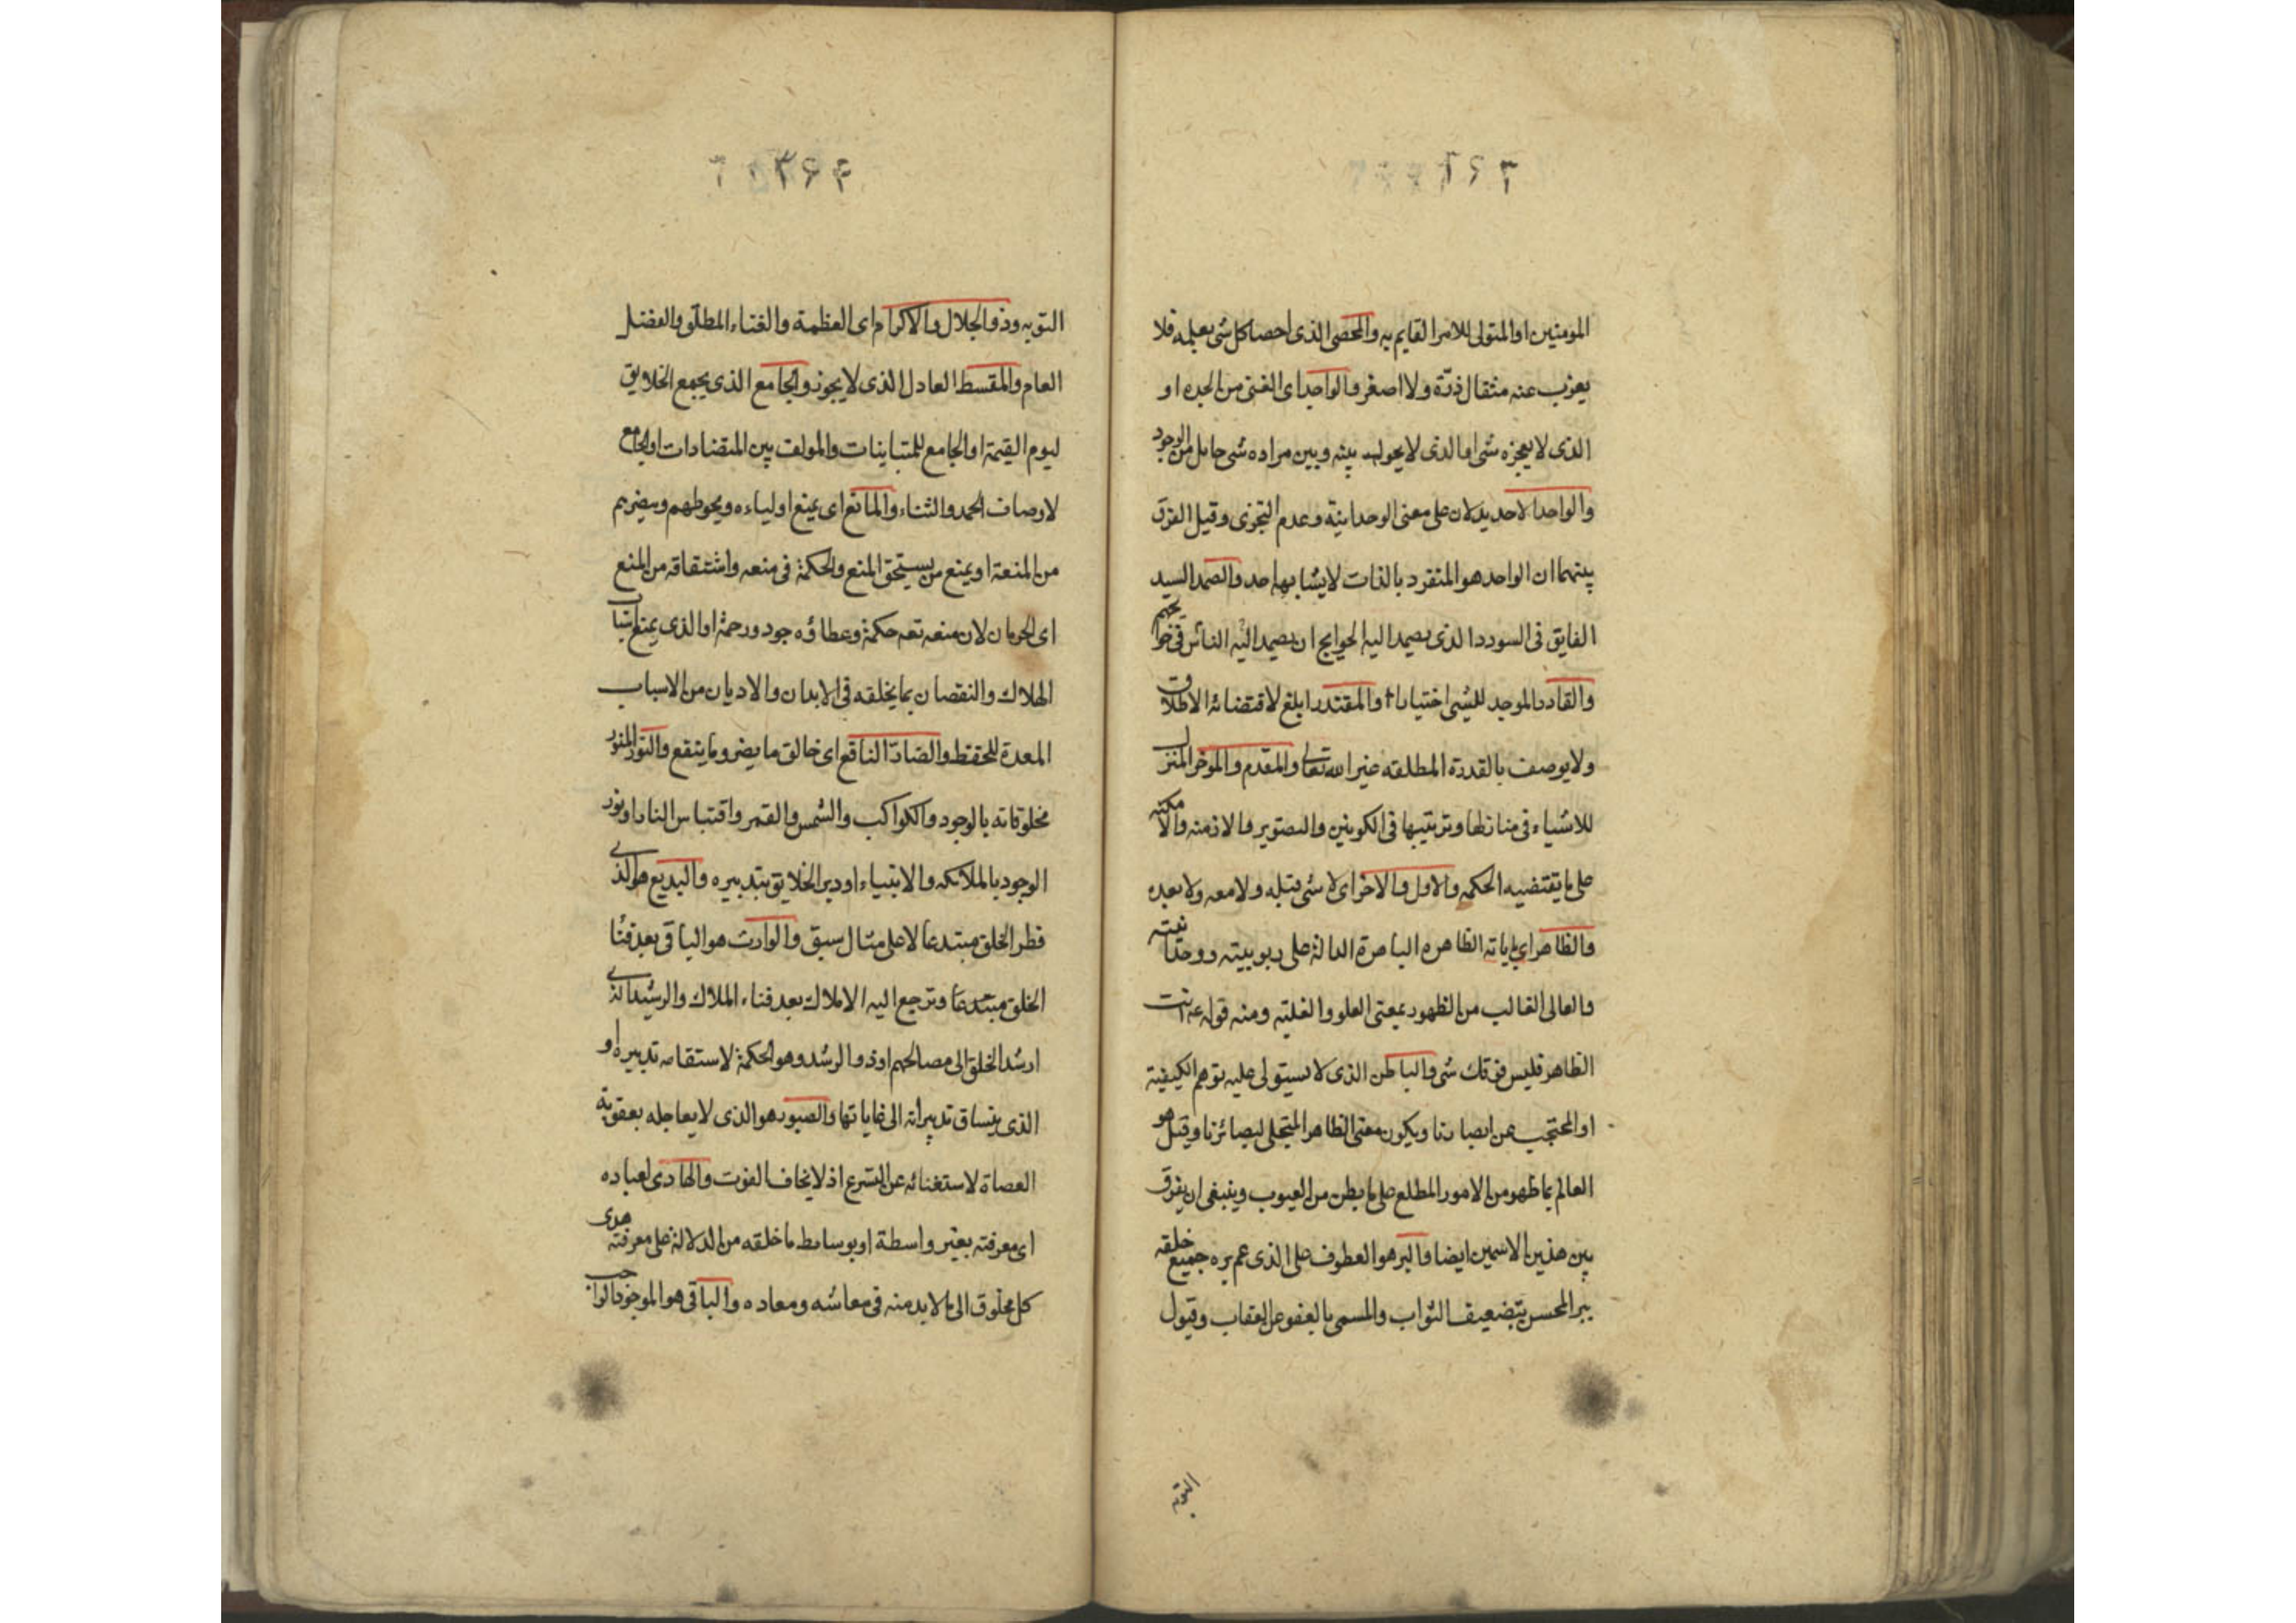 ٣٦٣
المومنين او المتولى للامر القايم به والمحصى الذى احصا كل شى بعلمه فلا
يعزب عنه مثقال ذرّة ولا اصغر والواجد اى الغنى من الجده او
الذى لا يعجزه شى او الذى لا يحول بينه وبين مراده شى حايل من الوجود
والواحد الاحد يدلان على معنى الوحدانية وعدم التجزى وقيل الفرق
بينهما ان الواحد هو المنفرد بالذات لا يشابهه احد والصمد السيد
الفايق فى السودد الذى يصمد اليه الحوايج ان يصمد اليه الناس فى حوايجهم
والقادر الموجد للشى اختيارا والمقتدر ابلغ لاقتضائه الاطلاق
ولا يوصف بالقدرة المطلقه غير الله تعالى والمقدم والموخر المنزل
للاشياء فى منازلها وترتيبها فى التكوين والتصوير والازمنه والامكنه
على ما يقتضيه الحكمه والاول والاخر اى لا شى قبله ولا معه ولا بعده
والظاهر اى باياته الظاهره الباهرة الدالة على ربوبيته ووحدانيته
والعالى الغالب من الظهور بمعنى العلو والغلبه ومنه قوله عم انت
الظاهر فليس فوقك شى والباطن الذى لا يستولى عليه توهم الكيفية
او المحتجب عن ابصارنا ويكون معنى الظاهر المتجلى لبصائرنا وقيل هو
العالم بما ظهر من الامور المطلع على ما بطن من الغيوب وينبغى ان يفرق
بين هذين الاسمين ايضا والبر هو العطوف على الذى عم بره جميع خلقه
يبر المحسن بتضعيف الثواب والمسى بالعفو عن العقاب وقبول
التوبه
٣۶۴
التوبه وذو الجلال والاكرام اى العظمة والغناء المطلق والفضل
العام والمقسط العادل الذى لا يجوز والجامع الذى يجمع الخلايق
ليوم القيمة او الجامع للمتباينات والمولف بين المتضادات او الجامع
لاوصاف الحمد والثناء والمانع اى يمنع اولياءه ويحوطهم وينصرهم
من المنعة او يمنع من يستحق المنع والحكمة فى منعه واشتقاقه من المنع
اى الحرمان لان منعه تعه حكمة وعطاؤه جود ورحمة او الذى يمنع اسباب
الهلاك والنقصان بما يخلقه فى الابدان والاديان من الاسباب
المعدة للحفظ والضارّ النافع اى خالق ما يضر وما ينفع والنور المنور
مخلوقاته بالوجود والكواكب والشمس والقمر واقتباس النار او نور
الوجود بالملائكه والانبياء او دبر الخلايق بتدبيره والبديع هو الذى
فطر الخلق مبتدعا لا على مثال سبق والوارث هو الباقى بعد فنا
الخلق مبتدعا وترجع اليه الاملاك بعد فناء الملاك والرشيد الذى
ارشد الخلق الى مصالحهم او ذو الرشد وهو الحكمة لاستقامه تدبيره او
الذى ينساق تدبيراته الى غاياتها والصبور هو الذى لا يعاجله بعقوبة
العصاة لاستغنائه عن التسرع اذ لا يخاف الفوت والهادى لعباده
اى معرفته بغير واسطة او بوسايط ما خلقه من الدلالة على معرفته هدى
كل مخلوق الى ما لا بد منه فى معاشه ومعاده والباقى هو الموجود الواجب